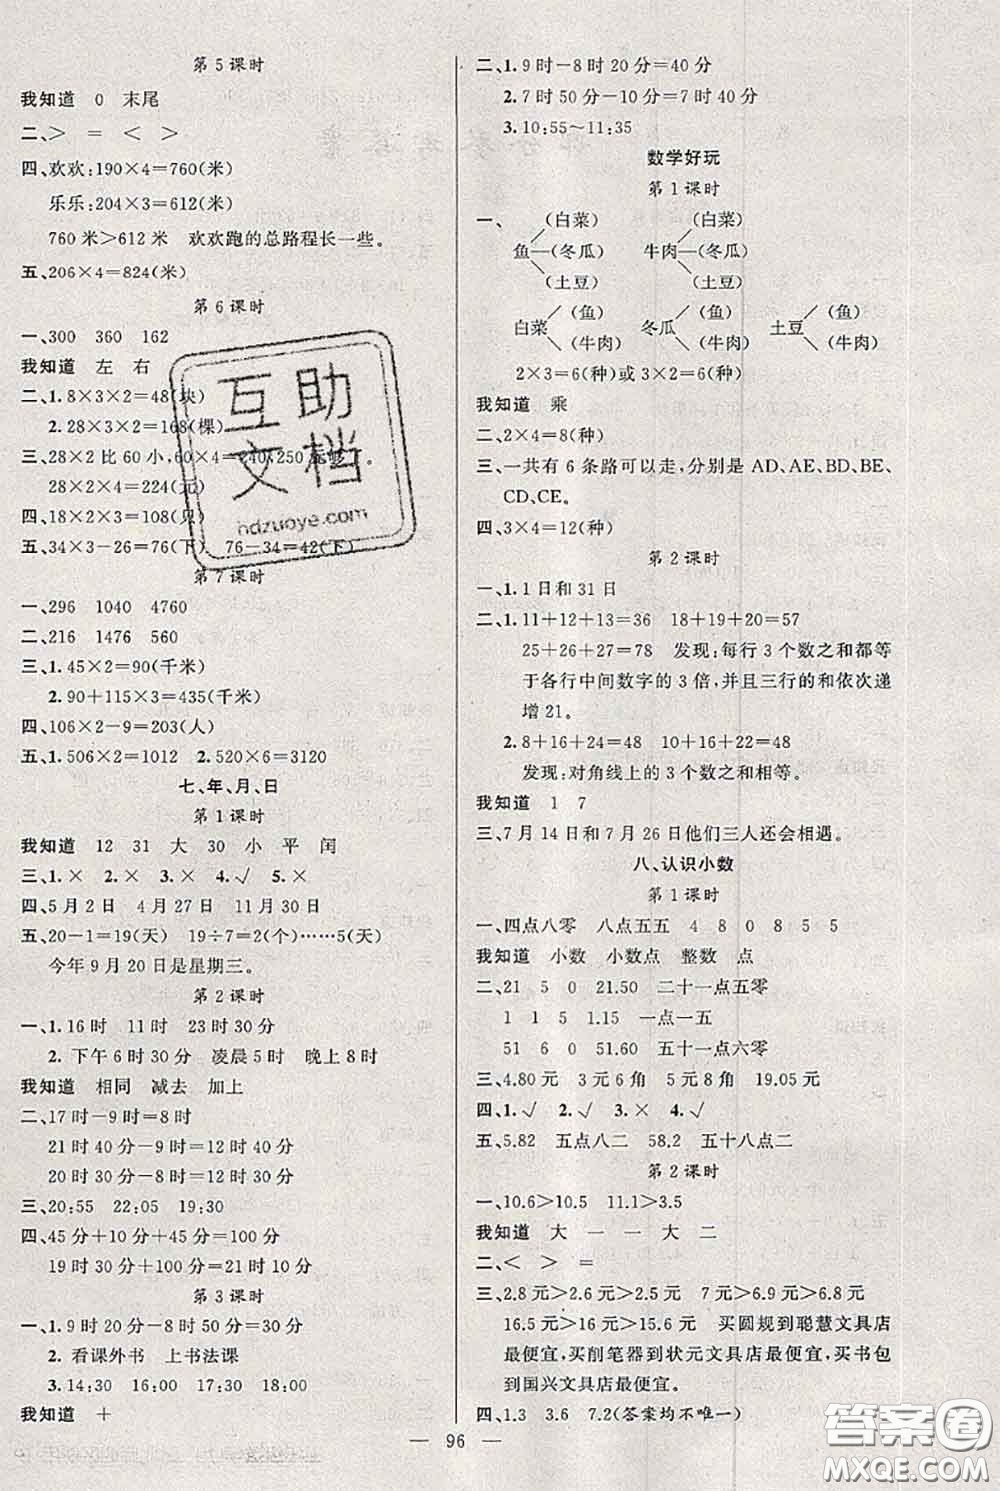 第5课时
我知道 0 末尾
二、＞ ＝ ＜ ＞
四、欢欢:190×4=760(米)
乐乐:204×3=612(米)
760米＞612米 欢欢跑的总路程长一些。
五、206×4=824(米)
第6课时
一、300 360 162
我知道 左 右
二、1.8×3×2=48(块)
2.28×3×2=168(棵)
三、28×2比60小,60×4=240,250
28×2×4=224(元)
四、18×2×3=108(只)
五、34×3-26=76(下) 76-34=42(下)
第7课时
一、296 1040 4760
二、216 1476 560
三、1.45×2=90(千米)
2.90+115×3=435(千米)
四、106×2-9=203(人)
五、1.506×2=1012 2.520×6=3120
七、年、月、日
第1课时
我知道 12 31 大 30 小 平 闰
三、1.× 2.× 3.× 4.√ 5.×
四、5月2日 4月27日 11月30日
五、20-1=19(天) 19÷7=2(个)……5(天)
今年9月20日是星期三。
第2课时
一、1.16时 11时 23时30分
2.下午6时30分 凌晨5时 晚上8时
我知道 相同 减去 加上
二、17时-9时=8时
21时40分-21时=40分
20时30分-20时=30分
三、20:55 22:05 19:30
四、45分+10分+45分=100分
19时30分+100分=21时10分
第3课时
一、1.9时20分-8时50分=30分
2.看课外书 上书法课
3.14:30 16:00 17:30 18:00
我知道 +
二、1.9时-8时20分=40分
2.7时50分-10分=7时40分
3.10:55~11:35
数学好玩
第1课时
一、 (白菜) (白菜)
鱼 (冬瓜) 牛肉 (冬瓜)
(土豆) (土豆)
(鱼) (鱼) (鱼)
白菜 冬瓜 土豆
(牛肉) (牛肉) (牛肉)
2×3=6(种)或3×2=6(种)
我知道 乘
二、2×4=8(种)
三、一共有6条路可以走,分别是AD、AE、BD、BE、
CD、CE。
四、3×4=12(种)
第2课时
一、1.1日和31日
二、1.11+12+13=36 18+19+20=57
25+26+27=78 发现:每行3个数之和都等
于各行中间数字的3倍,并且三行的和依次递
增21。
2.8+16+24=48 10+16+22=48
发现:对角线上的3个数之和相等。
我知道 1 7
三、7月14日和7月26日他们三人还会相遇。
八、认识小数
第1课时
一、四点八零 八点五五 4 8 0 8 5 5
我知道 小数 小数点 整数 点
二、21 5 0 21.50 二十一点五零
1 1 5 1.15 一点一五
51 6 0 51.60 五十一点六零
三、4.80元 3元6角 5元8角 19.05元
四、1.√ 2.√ 3.× 4.√
五、5.82 五点八二 58.2 五十八点二
第2课时
一、10.6＞10.5 11.1＞3.5
我知道 大 一 一 大 二
二、＜ ＞ ＝
三、2.8元＞2.6元＞2.5元 7元＞6.9元＞6.8元
16.5元＞16元＞15.6元 买圆规到聪慧文具店
最便宜,买削笔器到状元文具店最便宜,买书包
到国兴文具店最便宜。
四、1.3 3.6 7.2(答案均不唯一)
— 96 —
互助
文档
hdzuoye.com
答案圈
MXQE.COM